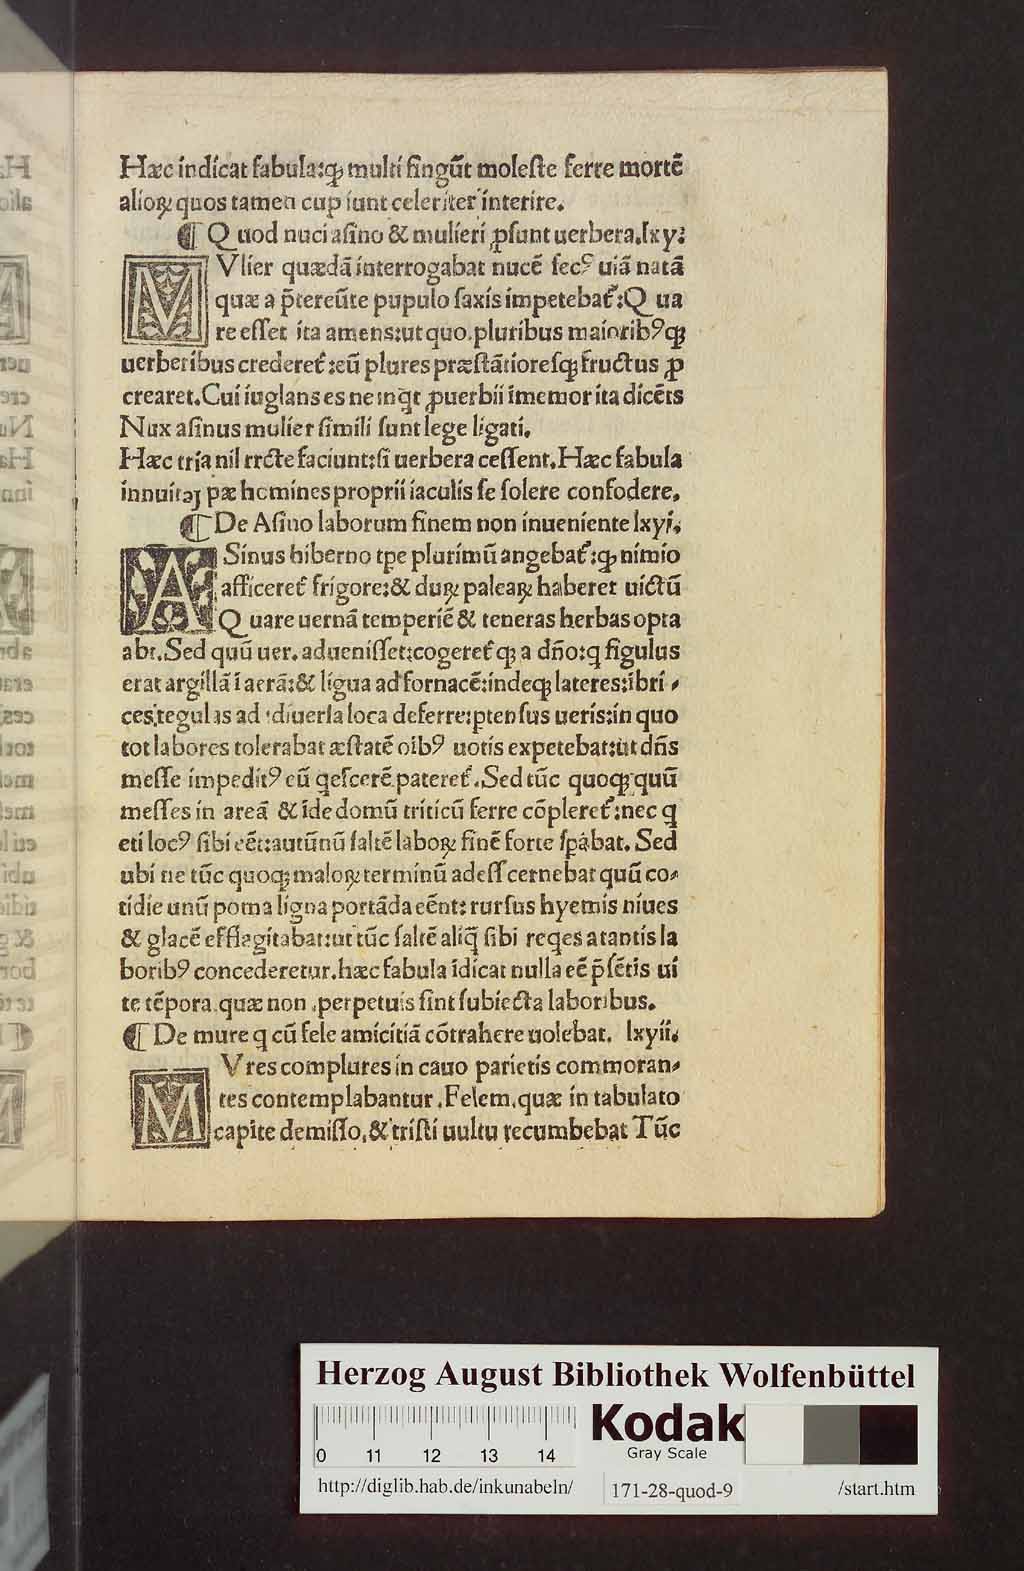 Hæc indicat fabula:ꝙ multi fingūt moleſte ferre mortē
alioꝝ quos tamen cupiunt celeriter interire.
¶ Quod nuci aſino & mulieri ꝓſunt uerbera.lxv:
MVlier quædā interrogabat nucē ſecꝰ uiā natā
quæ a p̄tereūte pupulo ſaxis impetebat᷑:Qua
re eſſet ita amens:ut quo.pluribus maioribꝰqꝫ
uerberibus crederet᷑:eū plures præſtātioreſqꝫ fructus ꝓ
crearet.Cui iuglans es ne inq̇t ꝓuerbii imemor ita dicēts
Nux aſinus mulier ſimili ſunt lege ligati.
Hæc tria nil rrcte faciunt:ſi uerbera ceſſent.Hæc fabula
innuit pæ homines proprii iaculis ſe ſolere confodere.
¶ De Aſino laborum finem non inueniente lxyi.
ASinus hiberno tpe plurimū angebat᷑:ꝙ nimio
afficeret᷑ frigore:& duꝝ paleaꝝ haberet uictū
Quare uernā temperiē & teneras herbas opta
abt.Sed quū uer.adueniſſet:cogeret᷑qꝫ a dn̄o:q figulus
erat argillā ī aerā:& ligua ad fornacē:indeqꝫ lateres:ībri
ces.tegulas ad diuerſa loca deferre:ptenſus ueris:in quo
tot labores tolerabat æſtatē oībꝰ uotis expetebat:ut dn̄s
meſſe impeditꝰ eū q̇eſcerē pateret᷑.Sed tūc quoqꝫ quū
meſſes in areā & īde domū triticū ferre cōpleret᷑:nec q
eti locꝰ ſibi eēt:autūnū ſaltē laboꝝ finē forte ſpābat.Sed
ubi ne tūc quoqꝫ maloꝝ terminū adeſſ cernebat quū co
tidie unū poma ligna portāda eēnt: rurſus hyemis niues
& glacē efflagitabat:ut tūc ſaltē aliq̄ ſibi req̇es a tantis la
boribꝰ concederetur.hæc fabula īdicat nulla eē p̄ſētis ui
te tēpora quæ non .perpetuis ſint ſubiecta laboribus.
¶ De mure q cū fele amicitiā cōtrahere uolebat. lxyii.
MVres complures in cauo parietis commoran
tes contemplabantur.Felem.quæ in tabulato
capite demiſſo.& triſti uultu recumbebat Tūc
Herzog August Bibliothek Wolfenbüttel
Kodak
Gray Scale
0 11 12 13 14
http://diglib.hab.de/inkunabeln/ 171-28-quod-9 /start.htm